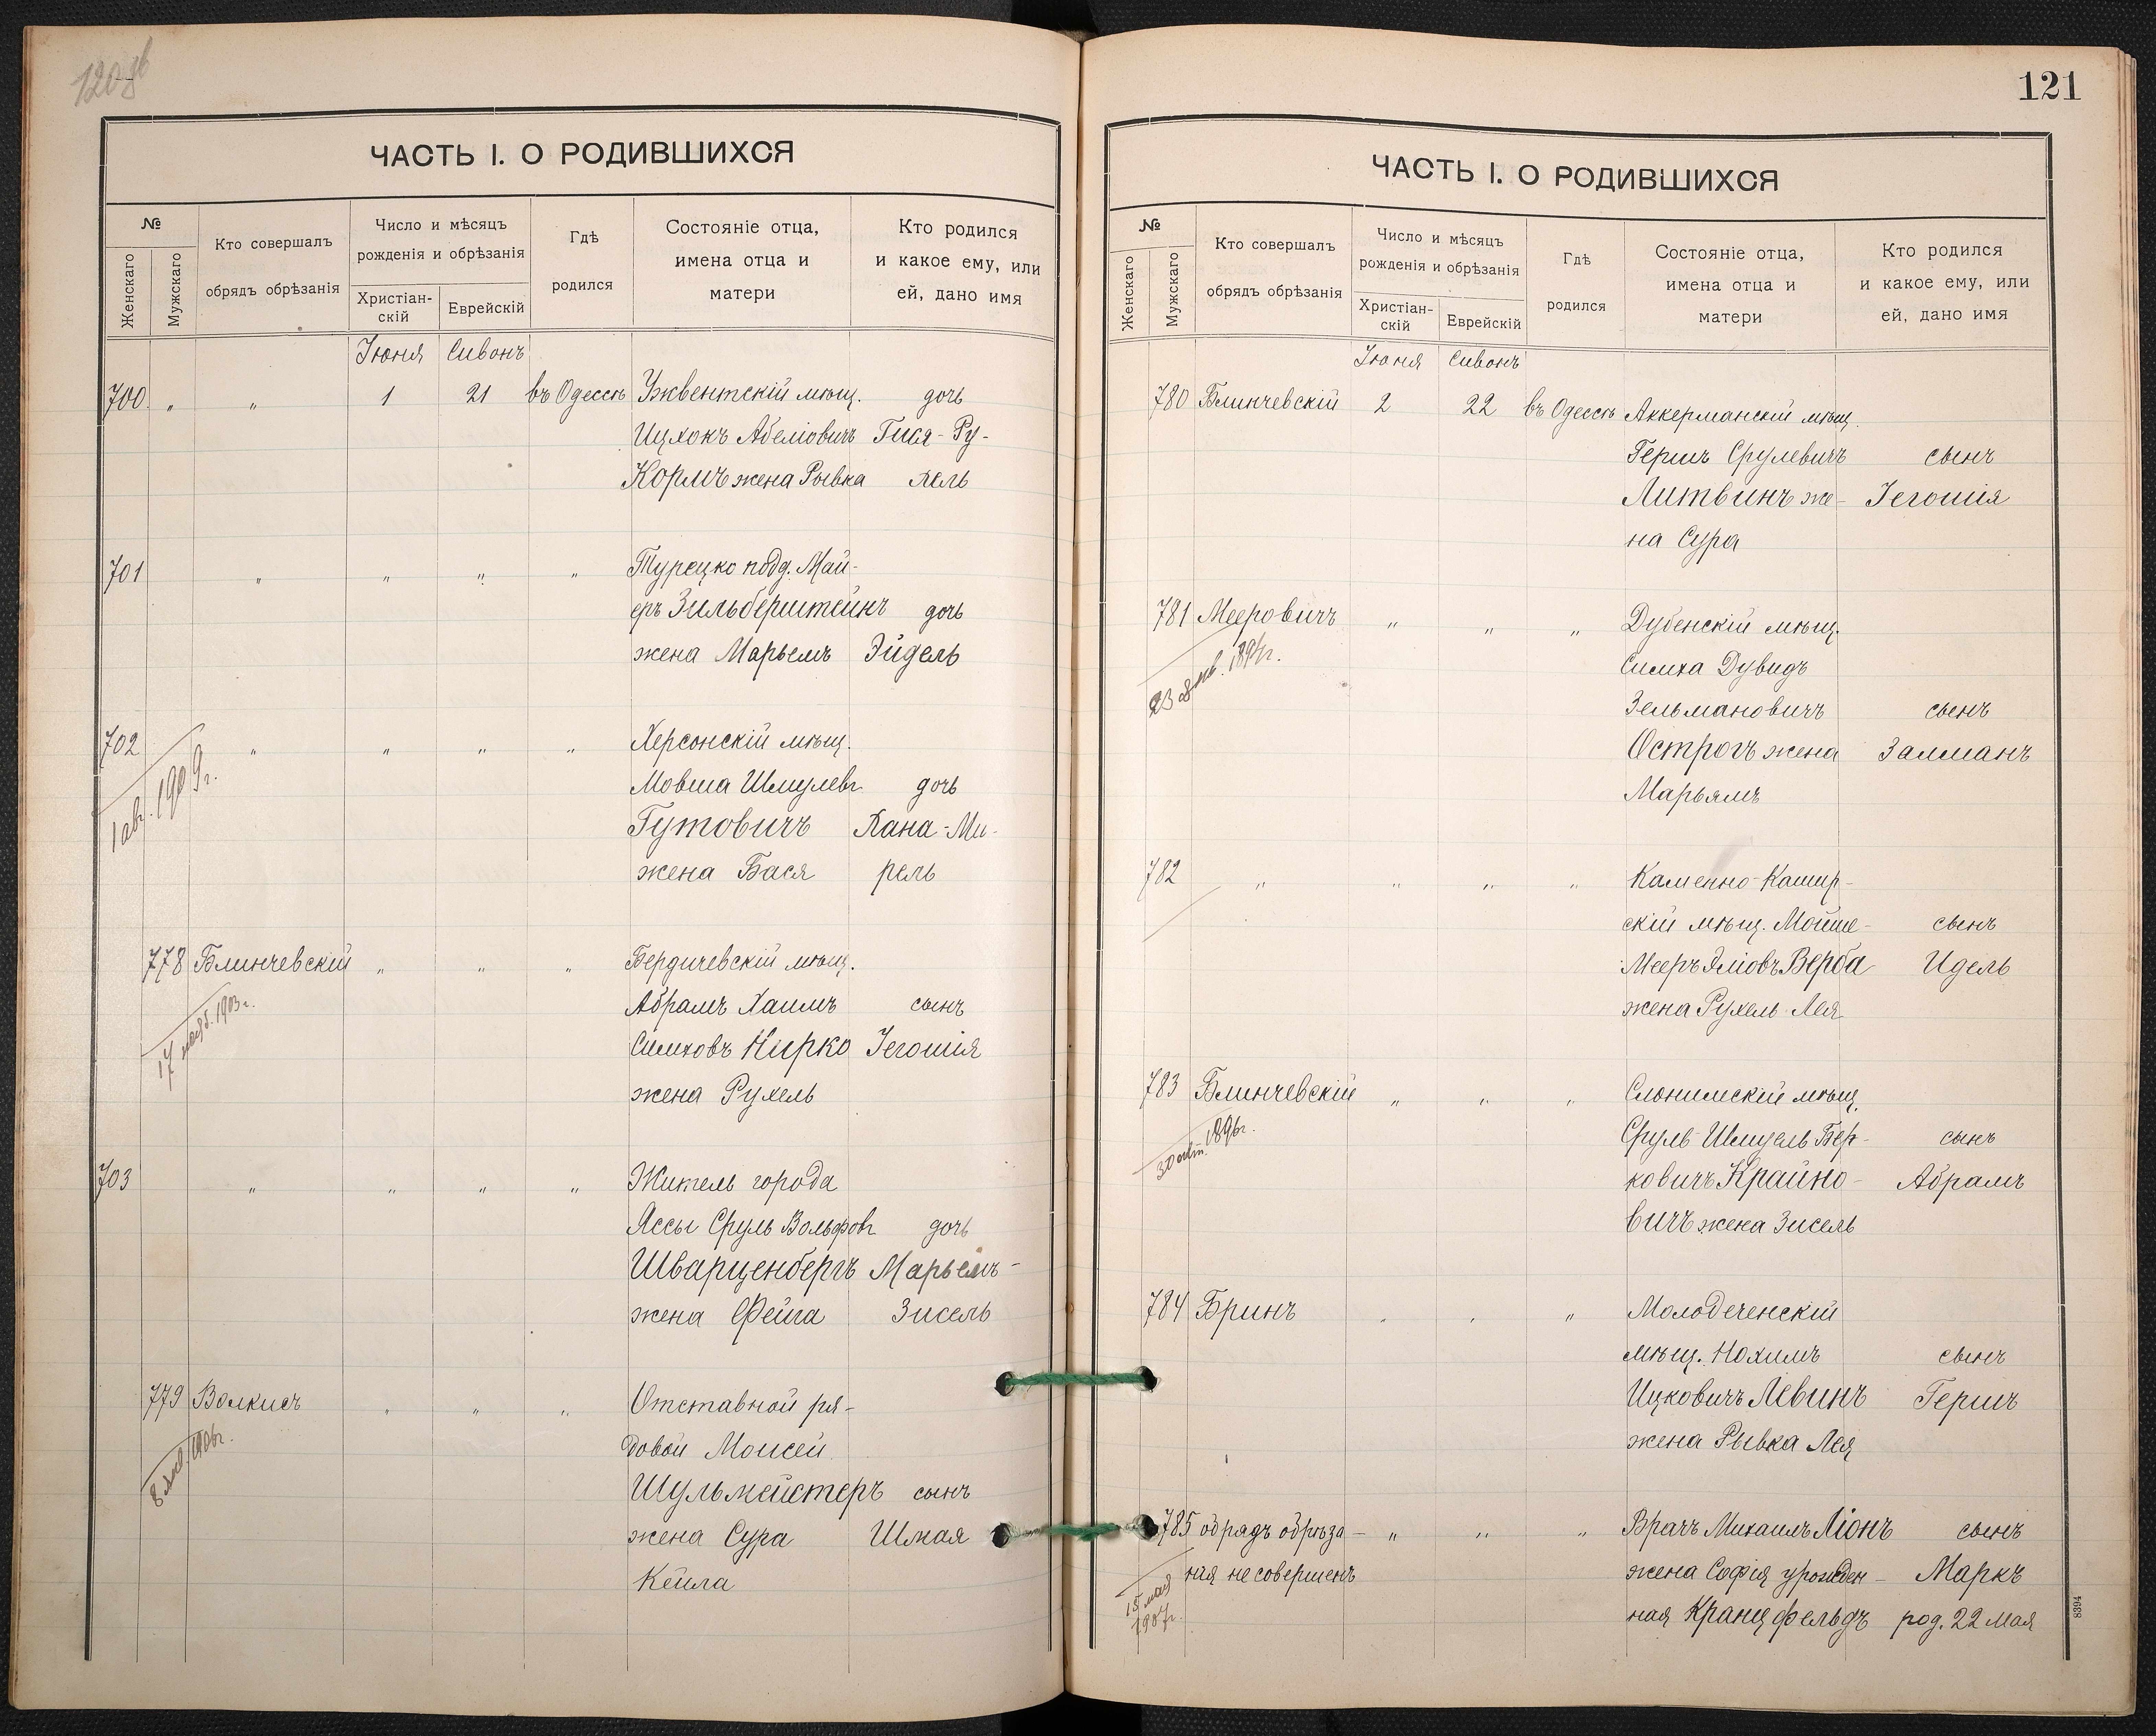 120 об
ЧАСТЬ I. О РОДИВШИХСЯ
№
Женскаго
Мужскаго
Кто совершалъ
обрядъ обрѣзанія
Число и мѣсяцъ
рожденія и обрѣзанія
Христіан-
скій
Еврейскій
Гдѣ
родился
Состояніе отца,
имена отца и
матери
Кто родился
и какое ему, или
ей, дано имя
Іюня Сивонъ
700 " " 1 21 въ Одессѣ Ужвентскій мѣщ. дочь
Ицхокъ Абеліовичъ Гися-Ру-
Кормъ жена Рывка хель
701 " " " " Турецко подд. Май-
еръ Зильберштейнъ дочь
жена Марьемъ Эйдель
702 " " " " Херсонскій мѣщ.
Мовша Шмулев. дочь
1 авг. 1909 г.
Гутовичъ Хана-Ми-
жена Бася рель
778 Блинчевскій " " " Бердичевскій мѣщ.
Абрамъ Хаимъ сынъ
17 нояб. 1903 г.
Симховъ Нирко Іегошія
жена Рухель
703 " " " " Житель города
Яссы Сруль Вольфов. дочь
Шварценбергъ Марьемъ-
жена Фейга Зисель
779 Волкисъ " " " Отставной ря-
довой Моисей
8
Шульмейстеръ сынъ
жена Сура Шмая
Кейла
121
ЧАСТЬ I. О РОДИВШИХСЯ
№
Женскаго
Мужскаго
Кто совершалъ
обрядъ обрѣзанія
Число и мѣсяцъ
рожденія и обрѣзанія
Христіан-
скій
Еврейскій
Гдѣ
родился
Состояніе отца,
имена отца и
матери
Кто родился
и какое ему, или
ей, дано имя
Іюня Сивонъ
780 Блинчевскій 2 22 въ Одессѣ Аккерманскій мѣщ.
Гершъ Срулевичъ сынъ
Литвинъ же- Іегошія
на Сура
781 Мееровичъ " " " Дубенскій мѣщ.
23
Симха Дувидъ
Зельмановичъ сынъ
Острогъ жена Залманъ
Марьямъ
782 " " " " Каменно-Кашир-
скій мѣщ. Мойше- сынъ
Мееръ Эліовъ Верба Идель
жена Рухель Лея
783 Блинчевскій " " " Слонимскій мѣщ.
30 окт. 1896 г.
Сруль-Шмуель Бер- сынъ
ковичъ Крайно- Абрамъ
вичъ жена Зисель
784 Бринъ " " " Молодеченскій
мѣщ. Нохимъ сынъ
Ицковичъ Левинъ Гершъ
жена Рывка Лея
785 обрядъ обрѣза- " " " Врачъ Михаилъ Ліонъ сынъ
нія не совершенъ жена Софія урожден- Маркъ
15 мая
1907 г.
ная Кранцфельдъ род. 22 Мая
8394